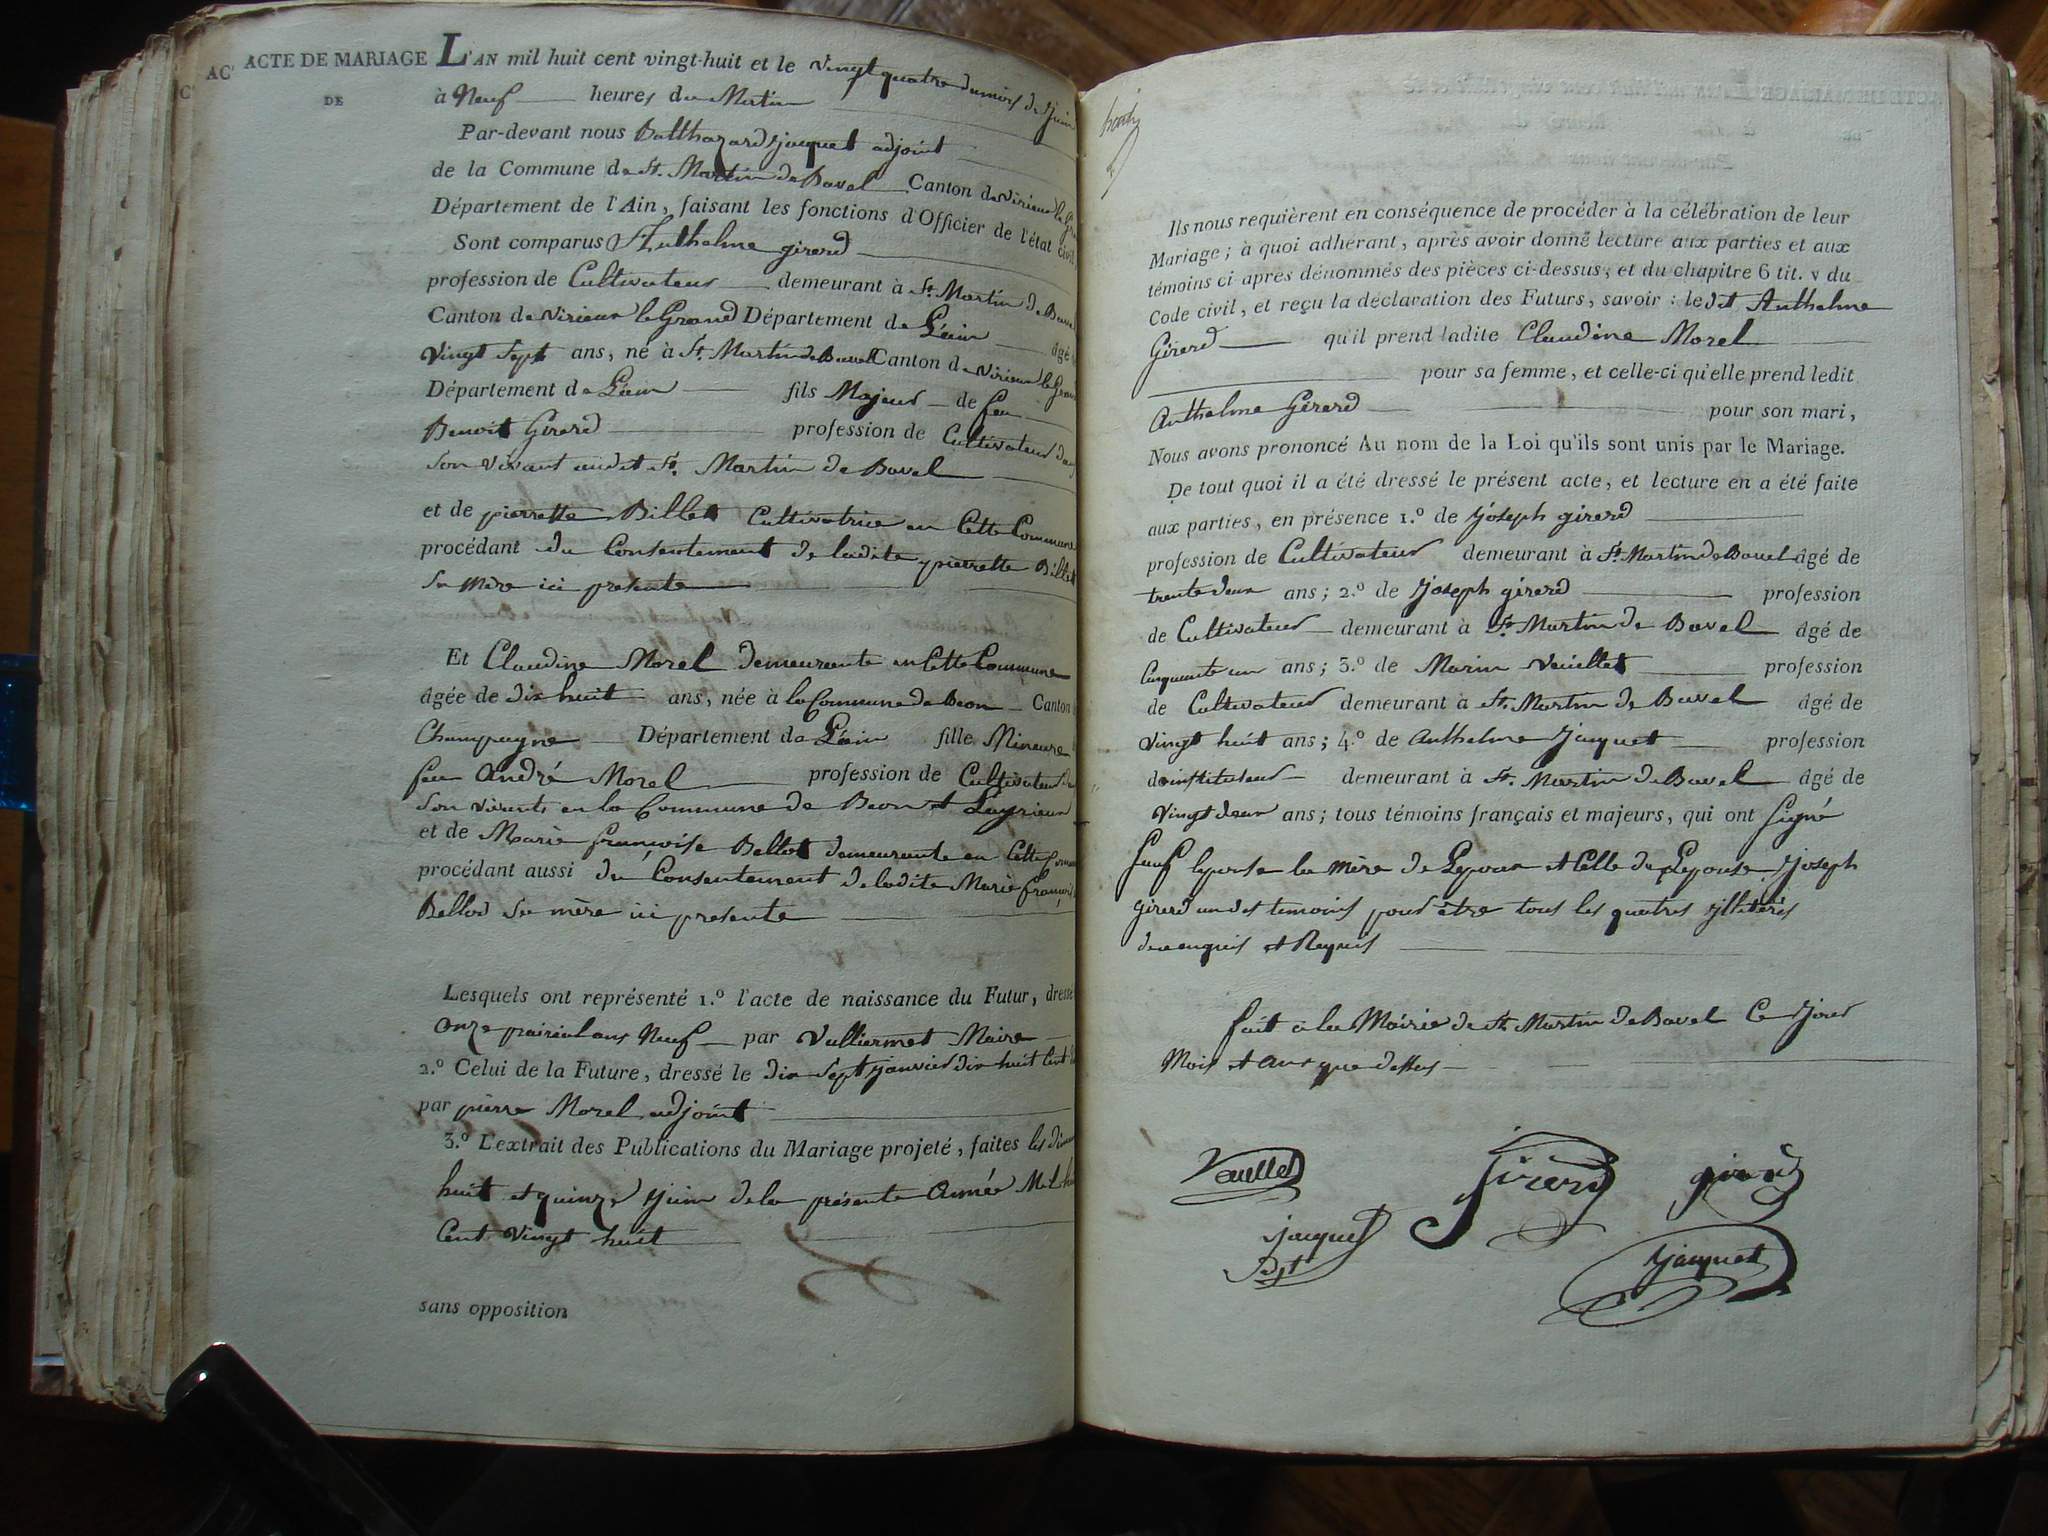 ACTE DE MARIAGE L'AN mil huit cent vingt-huit et le vingt quatre du mois de Juin
DE
à Neuf heures du Matin
Par-devant nous Balthazard Jacquet adjoint
de la Commune de St. Martin de Bavel Canton de Virieux le Gra
Département de l'Ain, faisant les fonctions d'Officier de l'état civil
Sont comparus Anthelme girerd
profession de Cultivateur demeurant à St. Martin de Bavel
Canton de Virieux le Grand Département de L'ain âgé
Vingt Sept ans, né à St. Martin de Bavel Canton de Virieux le Gran
Département de L'ain fils Majeur de feu
Benoit Girerd profession de Cultivateur
son vivant audit St. Martin de Bavel
et de pierrette Billet Cultivatrice en Cette Commune
procédant du Consentement de ladite pierrette Billet
sa mère ici presente
Et Claudine Morel demeurante en Cette Commune
âgée de dix huit ans, née à la Commune de Beon Canton
Champagne Département de L'ain fille Mineure
feu André Morel profession de Cultivateur
son vivants en la Commune de Beon et Luyrieux
et de Marie françoise Bellod demeurante en Cette
procédant aussi du Consentement de ladite Marie françoi
Bellod sa mère ici presente
Lesquels ont représenté 1.º l'acte de naissance du Futur, dressé
Onze prairial ans Neuf par Vulliermet Maire
2.º Celui de la Future, dressé le dix Sept janvier dix huit Cent
par pierre Morel adjoint
3.º L'extrait des Publications du Mariage projeté, faites les
huit et quinze Juin de la présente Année Mil
Cent Vingt huit
sans opposition
Ils nous requièrent en conséquence de procéder à la célébration de leur
Mariage; à quoi adhérant, après avoir donné lecture aux parties et aux
témoins ci après dénommés des pièces ci-dessus, et du chapitre 6 tit. v du
Code civil, et reçu la déclaration des Futurs, savoir: ledit Anthelme
Girerd qu'il prend ladite Claudine Morel
pour sa femme, et celle-ci qu'elle prend ledit
Anthelme Girerd pour son mari,
Nous avons prononcé Au nom de la Loi qu'ils sont unis par le Mariage.
De tout quoi il a été dressé le présent acte, et lecture en a été faite
aux parties, en présence 1.º de Joseph girerd
profession de Cultivateur demeurant à St. Martin de Bavel âgé de
trente deux ans; 2.º de Joseph girerd profession
de Cultivateur demeurant à St. Martin de Bavel âgé de
Cinquante un ans; 3.º de Marin Veuillet profession
de Cultivateur demeurant à St. Martin de Bavel âgé de
Vingt huit ans; 4.º de Anthelme Jacquet profession
d'instituteur demeurant à St. Martin de Bavel âgé de
Vingt deux ans; tous témoins français et majeurs, qui ont Signé
Sauf lepouse la mère de Lepoux et Celle de Lepouse Joseph
girerd un des temoins pour être tous les quatres illiterés
de ce enquis et Requis
fait à la Mairie de St. Martin de Bavel Ce Jour
Mois et Ans que dessus
Veuillet girerd girerd
jacquet Jacquet
adjt